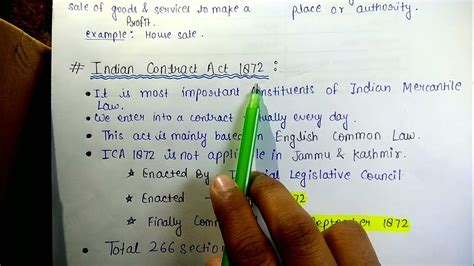 sale of goods & services to make a
Profit.
example: House sale.
place or authority.
# Indian Contract Act 1872:
• It is most important constituents of Indian Mercantile
Law.
• We enter into a contract every day.
• This act is mainly based on English Common Law.
• ICA 1872 is not applicable in Jammu & Kashmir.
☆ Enacted By Legislative Council
☆ Enacted 72
☆ Finally September 1872
• Total 266